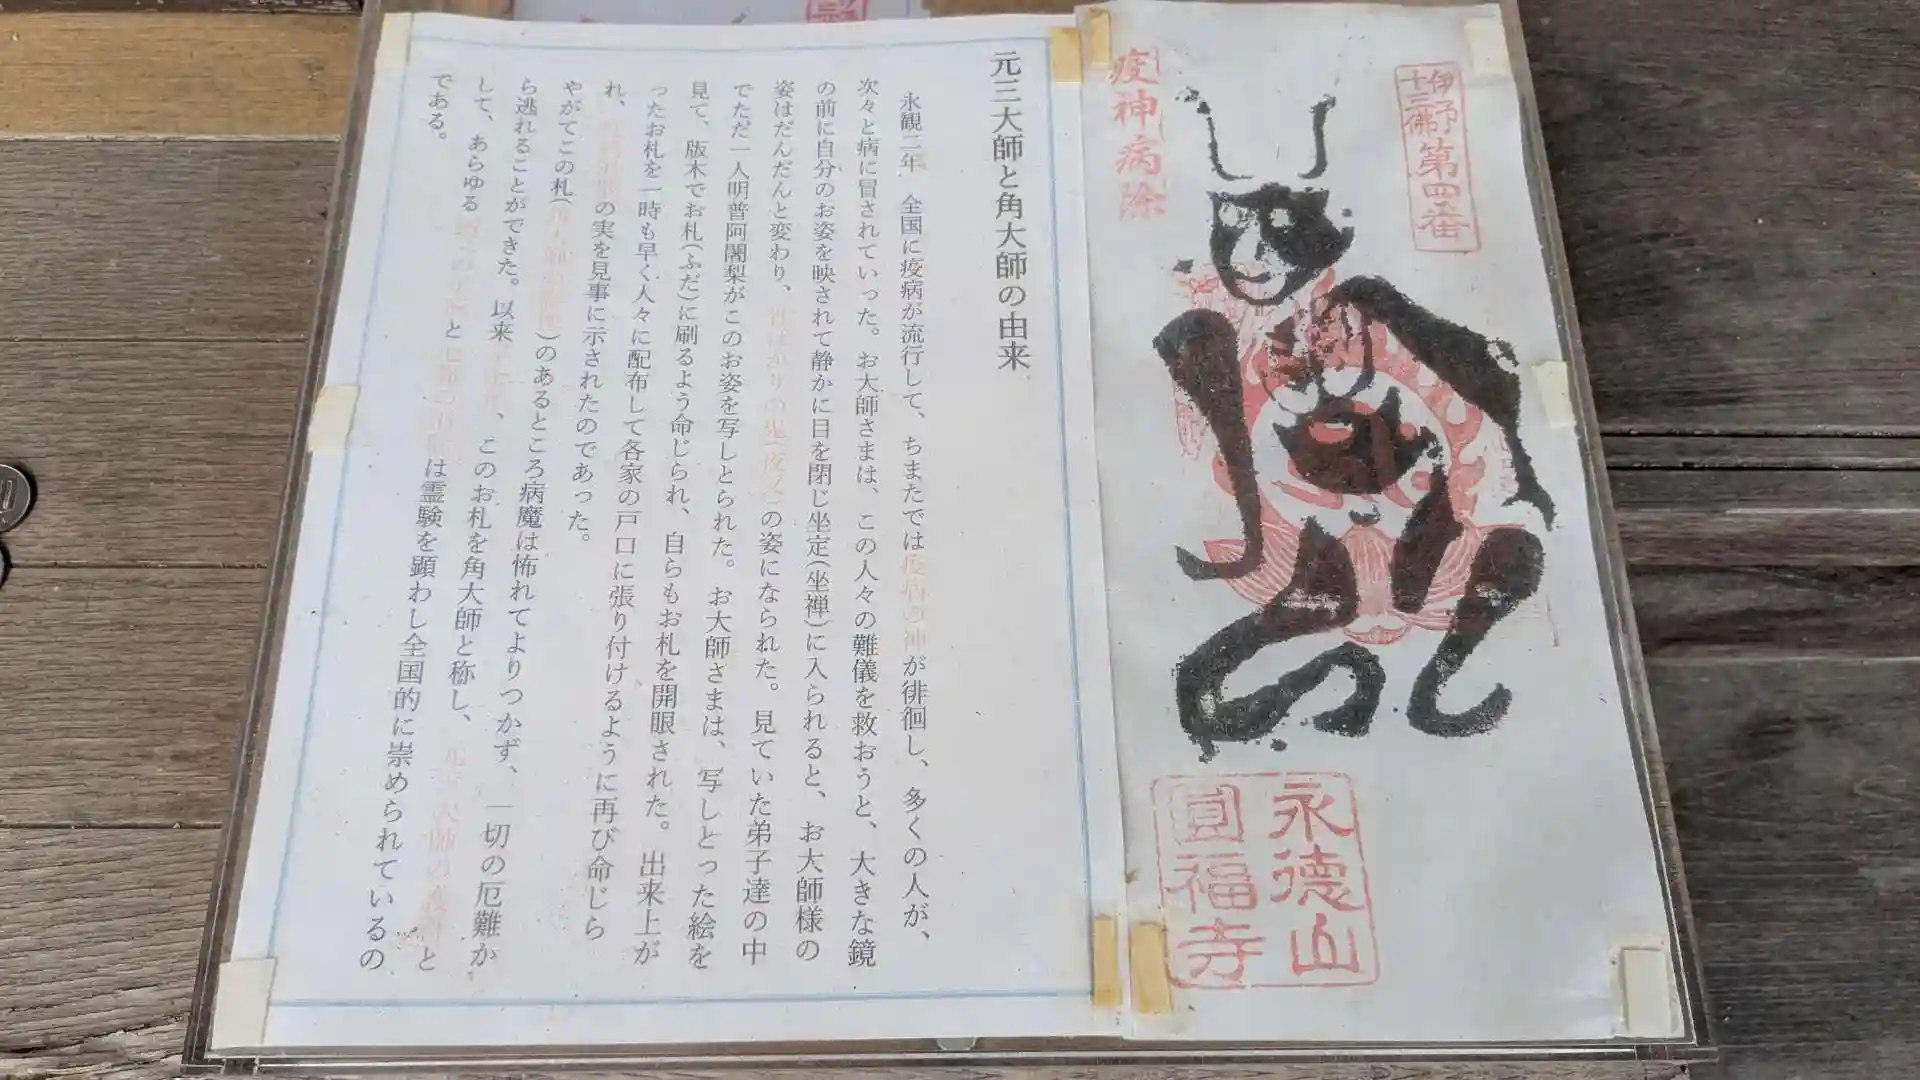 元三大師と角大師の由来
永観二年 全国に疫病が流行して、ちまたでは疫病の神が徘徊し、多くの人が、
次々と病に冒されていった。お大師さまは、この人々の難儀を救おうと、大きな鏡
の前に自分のお姿を映されて静かに目を閉じ坐定(坐禅)に入られると、お大師様の
姿はだんだんと変わり、骨ばかりの鬼(夜叉)の姿になられた。見ていた弟子達の中
でただ一人明普阿闍梨がこのお姿を写しとられた。お大師さまは、写しとった絵を
見て、版木でお札(ふだ)に刷るよう命じられ、自らもお札を開眼された。出来上が
ったお札を一時も早く人々に配布して各家の戸口に張り付けるように再び命じら
れ、の実を見事に示されたのであった。
やがてこの札()のあるところ病魔は怖れてよりつかず、一切の厄難か
ら逃れることができた。以来、このお札を角大師と称し、元三大師の護符と
して、あらゆると は霊験を顕わし全国的に崇められているの
である。
伊予
十三佛
第四番
疫神病除
永德山
圓福寺